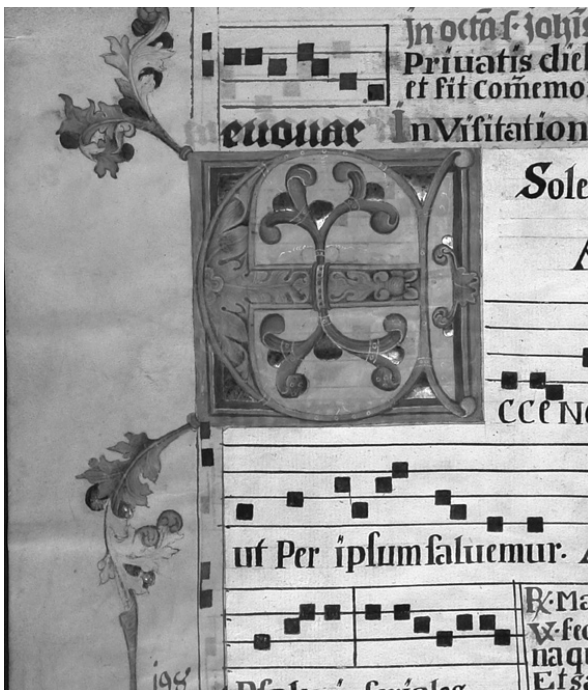 in octã s. johis
Priuatis die
et fit com̃emo
euouae In Visitation
Sole
E
CCE
ut Per ipsum saluemur.
℟. Ma
℣. fec
na qu
Et sa
198 Psalmi feriales